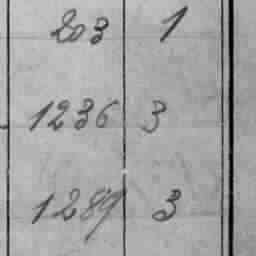 203 1
1236 3
1289 3